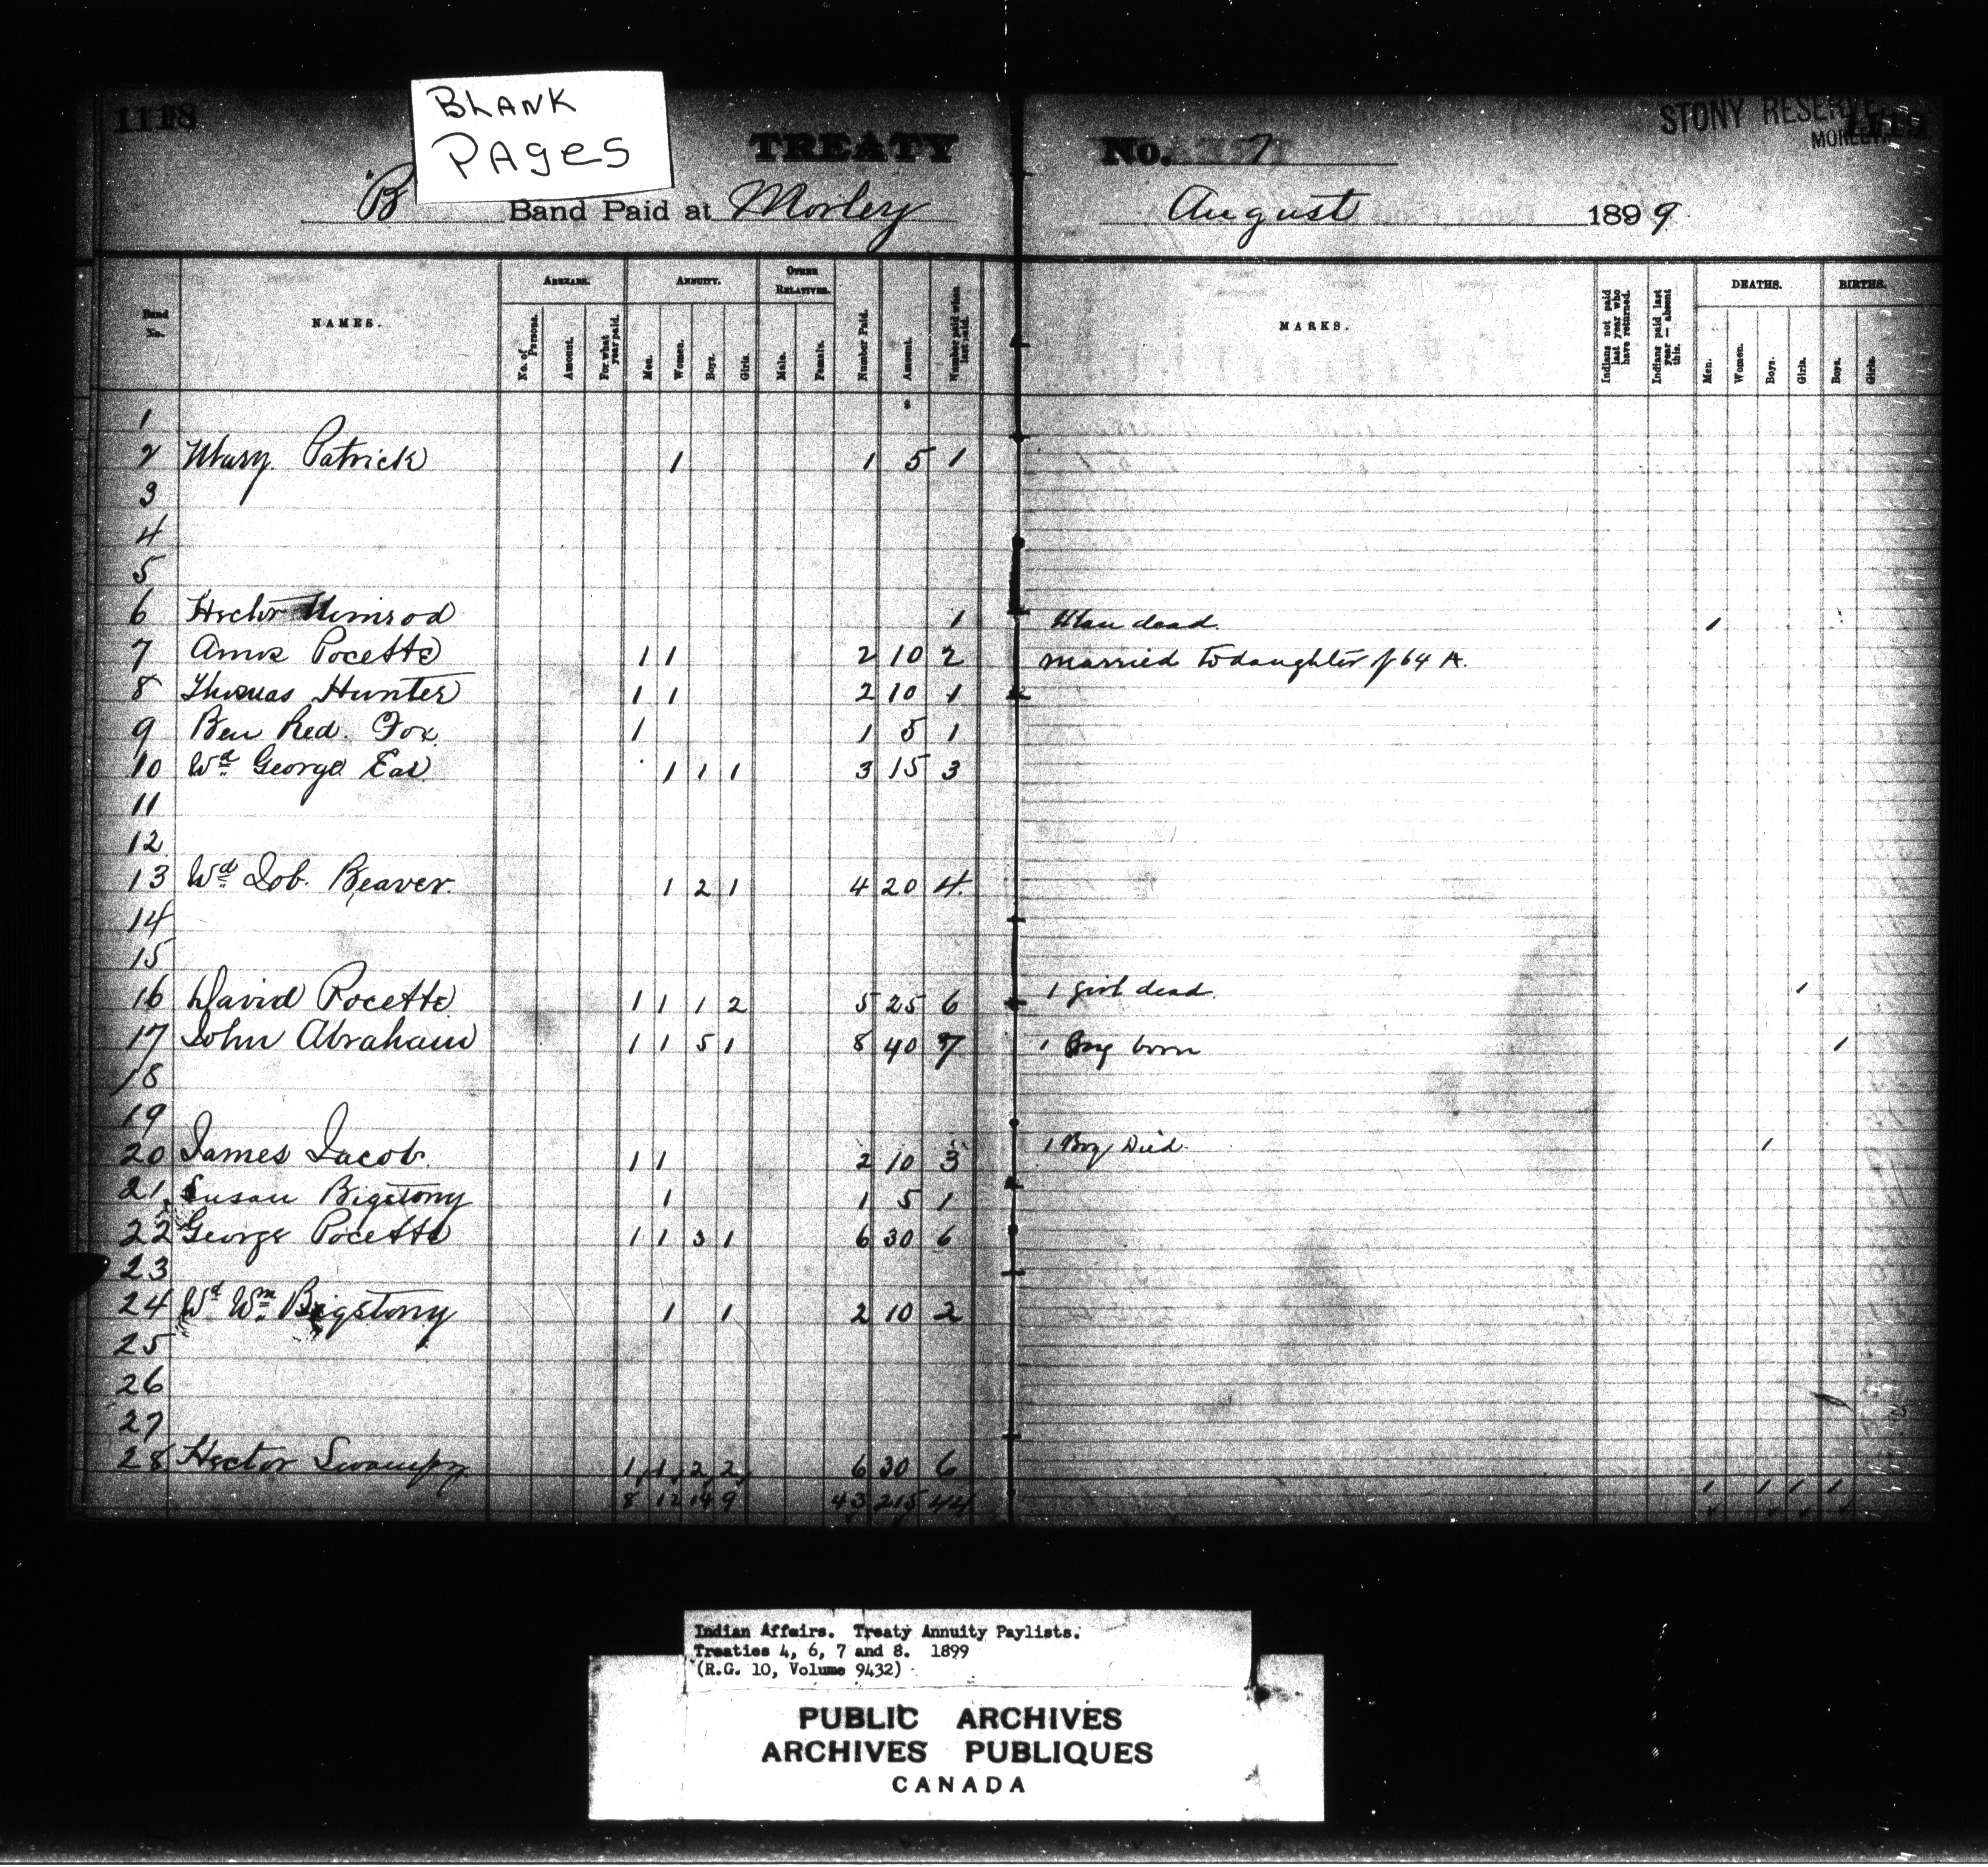 1118
BLANK
PAGES
TREATY No. 7
STONY RESERVE
MORLEY
1119
"B Band Paid at Morley August 1899
Band No. NAMES. ARREARS. No. of Persons. Amount. For what year paid. ANNUITY. Men. Women. Boys. Girls. OTHER RELATIVES. Male. Female. Number Paid. Amount. Number paid when last paid. MARKS. Indians not paid last year who have returned. Indians paid last year — absent this. DEATHS. Men. Women. Boys. Girls. BIRTHS. Boys. Girls.
1
2 Mary Patrick 1 1 5 1
3
4
5
6 Hector Nimrod 1 Man dead. 1
7 Amos Pocette 1 1 2 10 2 married to daughter of 64 A.
8 Thomas Hunter 1 1 2 10 1
9 Ben Red Fox 1 1 5 1
10 Wd George Ear 1 1 1 3 15 3
11
12
13 Wd Job Beaver 1 2 1 4 20 4
14
15
16 David Pocette 1 1 1 2 5 25 6 1 girl dead 1
17 John Abraham 1 1 5 1 8 40 7 1 Boy born 1
18
19
20 James Jacob 1 1 2 10 3 1 Boy Died 1
21 Susan Bigstony 1 1 5 1
22 George Pocette 1 1 3 1 6 30 6
23
24 Wd Wm Bigstony 1 1 2 10 2
25
26
27
28 Hector Swampy 1 1 2 2 6 30 6
8 12 14 9 43 215 44 1 1 1 1
Indian Affairs. Treaty Annuity Paylists.
Treaties 4, 6, 7 and 8. 1899
(R.G. 10, Volume 9432)
PUBLIC ARCHIVES
ARCHIVES PUBLIQUES
CANADA